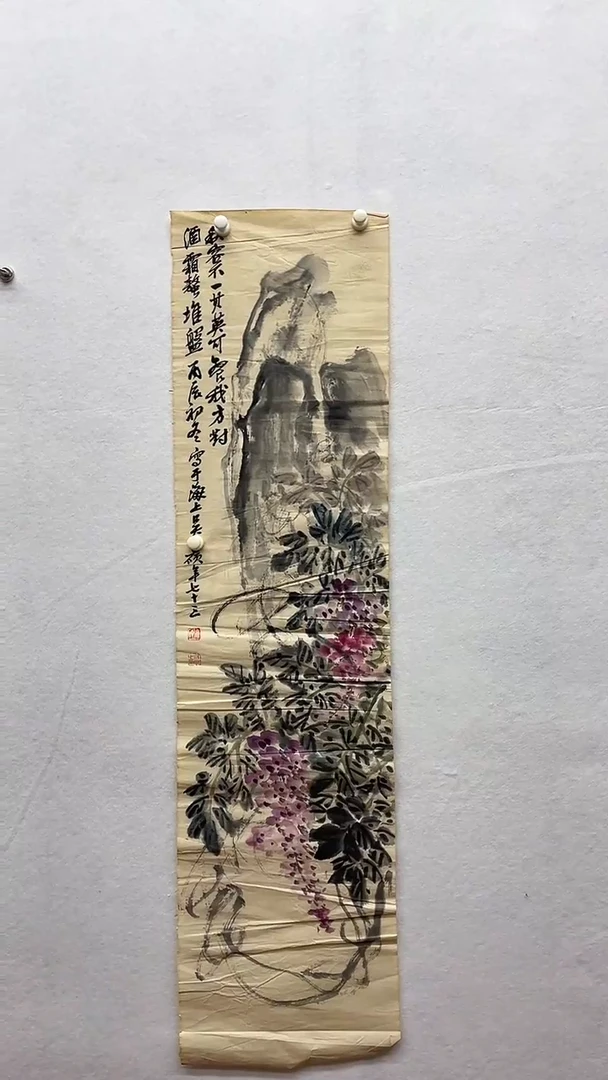 容不一其英可餐我方對
酒霜螯堆盤 丙辰初冬 寫于海上吳碩年七十三